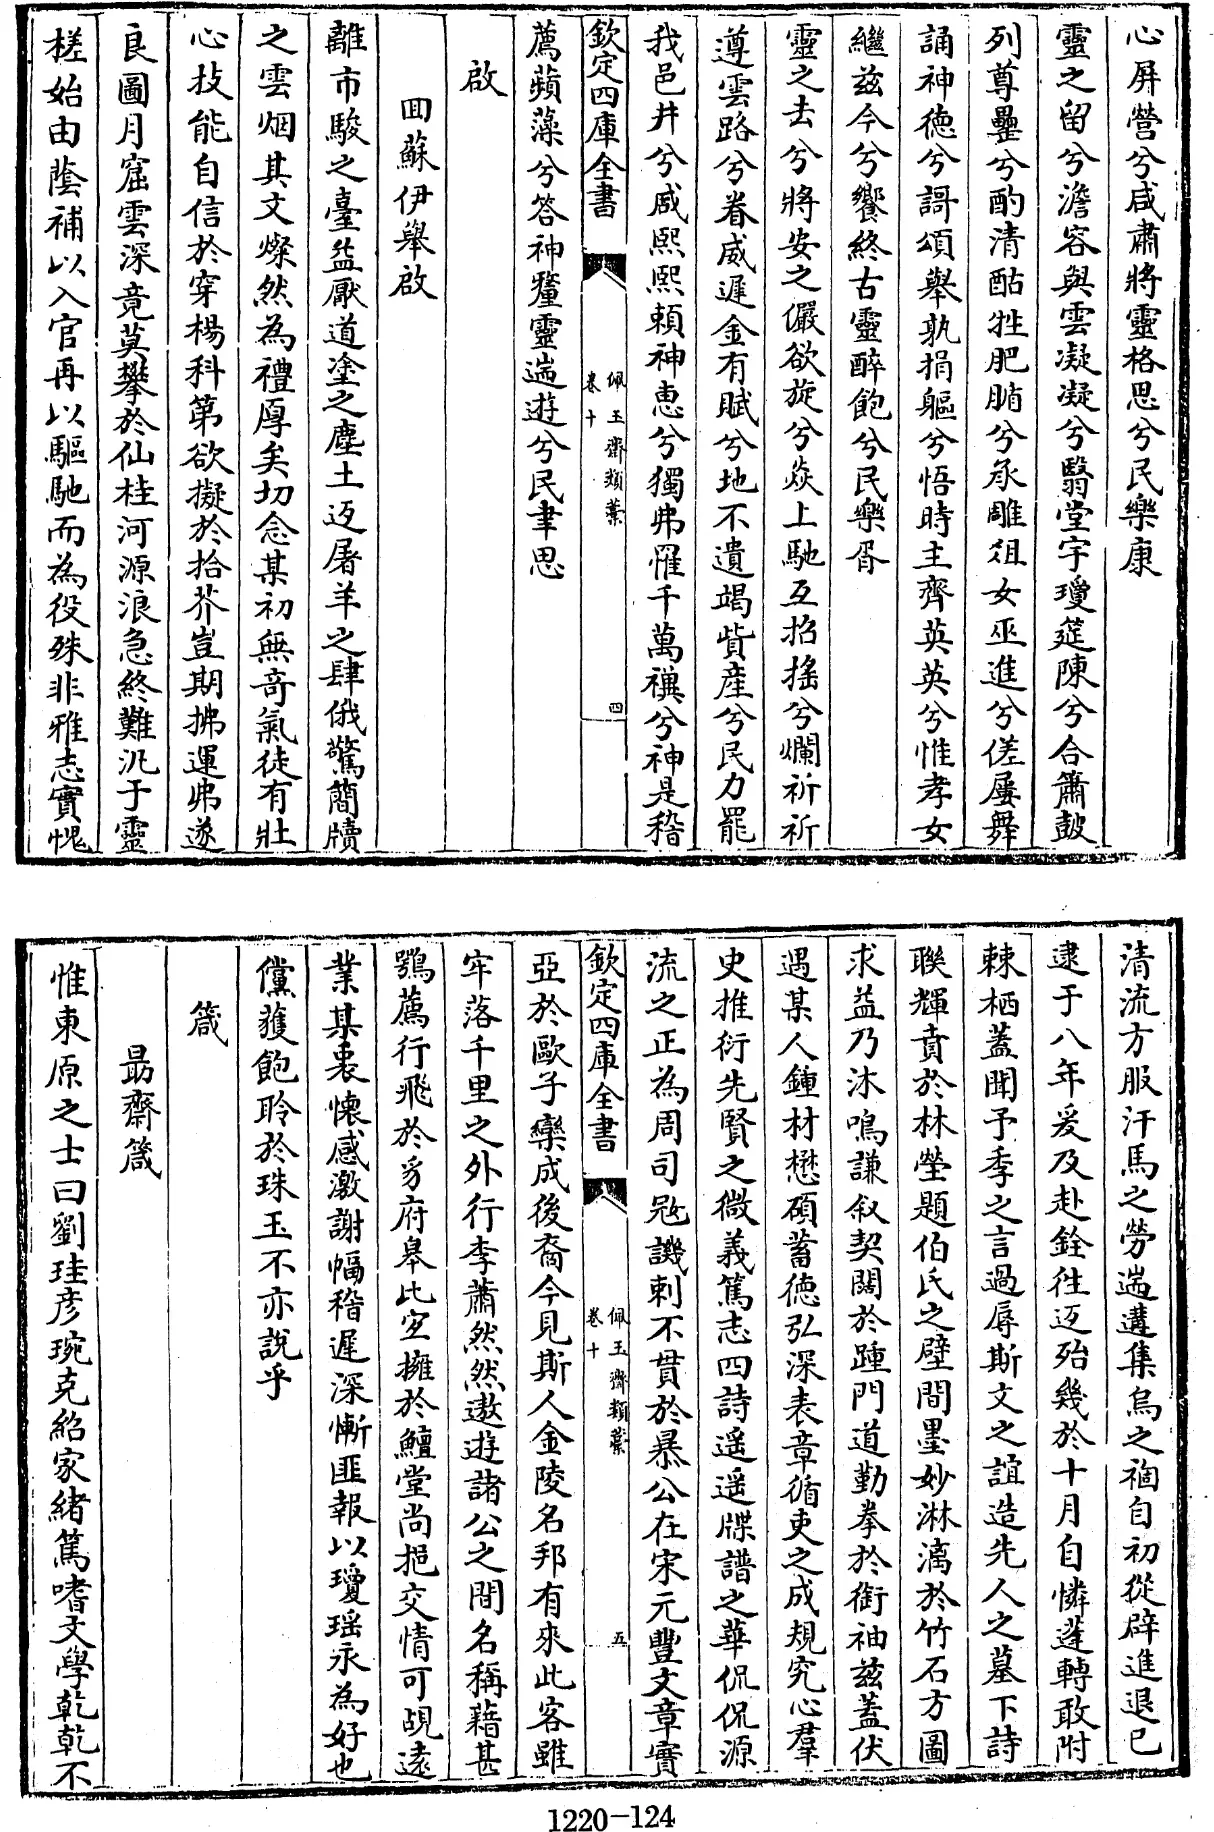 心屏營兮咸肅將靈格思兮民樂康
靈之留兮澹容與雲凝凝兮翳堂宇瓊筵陳兮合簫鼓
列尊罍兮酌清酤牲肥腯兮承雕俎女巫進兮傞屢舞
誦神德兮謌頌舉孰捐軀兮悟時主齊英英兮惟孝女
繼兹今兮饗終古靈醉飽兮民樂胥
靈之去兮將安之儼欲旋兮焱上馳互招搖兮爛祈祈
遵雲路兮眷威遲金有賦兮地不遺竭貲產兮民力罷
我邑井兮戚熙熙賴神惠兮獨弗罹千萬禩兮神是稽
欽定四庫全書
佩玉齋類藁
卷十
四
薦蘋藻兮答神釐靈遄逰兮民聿思
啟
回蘇伊舉啟
離市駿之臺益厭道塗之塵土返屠羊之肆俄驚簡牘
之雲烟其文燦然為禮厚矣切念某初無奇氣徒有壯
心技能自信於穿楊科第欲擬於拾芥豈期拂運弗遂
良圖月窟雲深竟莫攀於仙桂河源浪急終難汎于靈
槎始由蔭補以入官再以驅馳而為役殊非雅志實愧
清流方服汗馬之勞遄遘集烏之禍自初從辟進退已
逮于八年爰及赴銓往返殆幾於十月自憐蓬轉敢附
棘栖蓋聞予季之言過辱斯文之誼造先人之墓下詩
聯輝賁於林塋題伯氏之壁間墨妙淋漓於竹石方圖
求益乃沐鳴謙叙契闊於踵門道勤拳於銜袖兹蓋伏
遇某人鍾材懋碩蓄德弘深表章循吏之成規究心羣
史推衍先賢之微義篤志四詩遥遥牒譜之華侃侃源
流之正為周司寇譏刺不貫於暴公在宋元豐文章實
欽定四庫全書
佩玉齋類藁
卷十
五
亞於歐子欒成後裔今見斯人金陵名邦有來此客雖
牢落千里之外行李蕭然然遨逰諸公之間名稱藉甚
鶚薦行飛於豸府皋比宜擁於鱣堂尚挹交情可覘遠
業某裏懷感激謝幅稽遲深慚匪報以瓊瑶永為好也
儻獲飽聆於珠玉不亦說乎
箴
勗齋箴
惟東原之士曰劉珪彦琬克紹家緒篤嗜文學乾乾不
1220-124